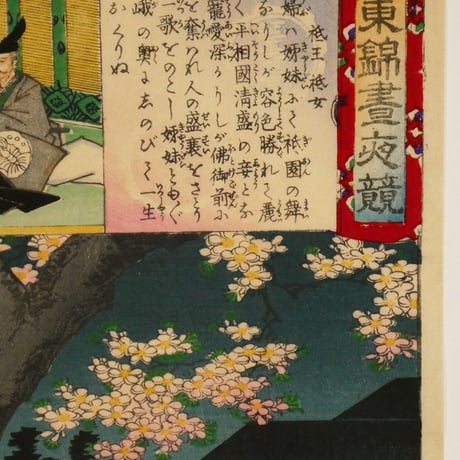 東錦晝夜競
祇王 祇女
婦ハ姉妹ふて祇園の舞
りしが容色勝れて麗
く平相國清盛の妾とな
寵愛深かりしが佛御前ふ
を奪われ人の盛衰をさとり
一歌をのこし姉妹とも
峨の奥ゑのびて一生
くりぬ